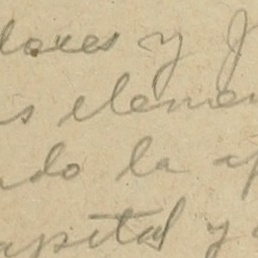 lores y J
s elemen
ndo la a
apital y